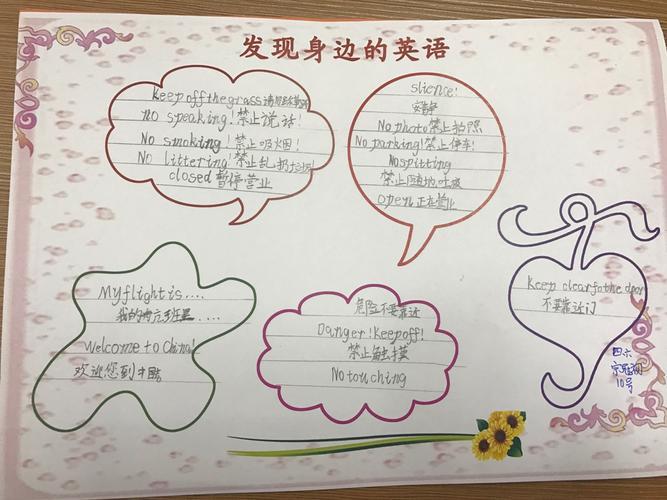 发现身边的英语
Keep off the grass 请勿
No speaking! 禁止说话!
No smoking! 禁止吸烟!
No littering! 禁止乱扔垃圾!
closed 暂停营业
slience!
安静
No photo 禁止拍照
No parking! 禁止停车!
No spitting
禁止随地吐痰
open 正在营业
My flight is....
我的
Welcome to China!
欢迎您到中国
危险不要靠近
Danger! Keep off!
禁止触摸
No touching
Keep clear fo the door
不要靠近门
四六
10号